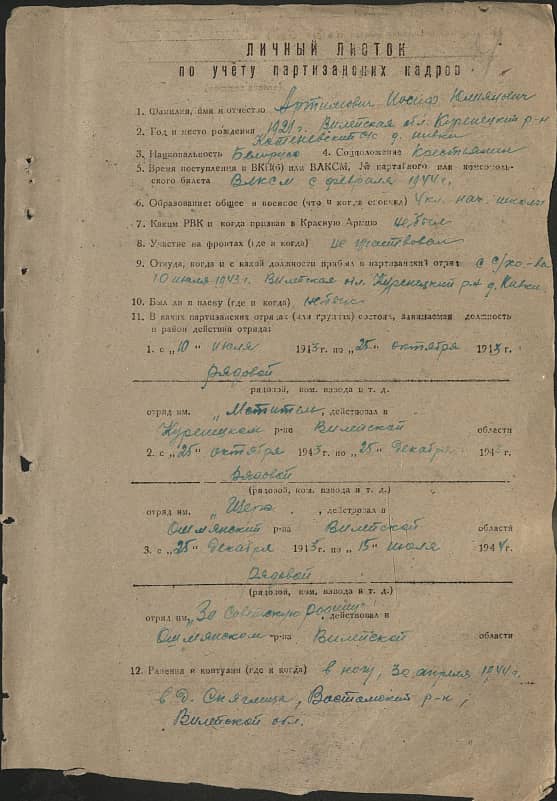 ЛИЧНЫЙ ЛИСТОК
по учету партизанских кадров
1. Фамилия, имя и отчество Артимович Иосиф Юльянович
2. Год и место рождения 1921 г. Вилейская обл. Куренецкий р-н
с/с д. Нивки
3. Национальность Белорус 4. Соцположение Крестьянин
5. Время поступления в ВКП(б) или ВЛКСМ, № партийного или комсомоль-
ского билета ВЛКСМ с февраля 1944 г.
6. Образование: общее и военное (что и когда окончил) 4 кл. нач. школы
7. Каким РВК и когда призван в Красную Армию не был
8. Участие на фронтах (где и когда) не участвовал
9. Откуда, когда и с какой должности прибыл в партизанский отряд с с/хо-ва
10 июля 1943 г. Вилейская обл. Куренецкий р-н д. Нивки
10. Был ли в плену (где и когда) не был
11. В каких партизанских отрядах (или группах) состоял, занимаемая должность
и район действий отряда:
1. с „10" июля 1943 г. по „25" октября 1943 г.
Рядовой
рядовой, ком. взвода и т. д.
отряд им. „Мститель", действовал в
Куренецком р-не Вилейской области
2. с „25" октября 1943 г. по „25" декабря 1943 г.
Рядовой
(рядовой, ком. взвода и т. д.)
отряд им. , действовал в
Ошмянский р-не Вилейской области
3. с „25" декабря 1943 г. по „15" июля 1944 г.
Рядовой
(рядовой, ком. взвода и т. д.)
отряд им. „За Советскую родину", действовал в
Ошмянском р-не Вилейской области
12. Ранения и контузии (где и когда) в ногу, 30 апреля 1944 г.
в д. р-н,
Вилейской обл.